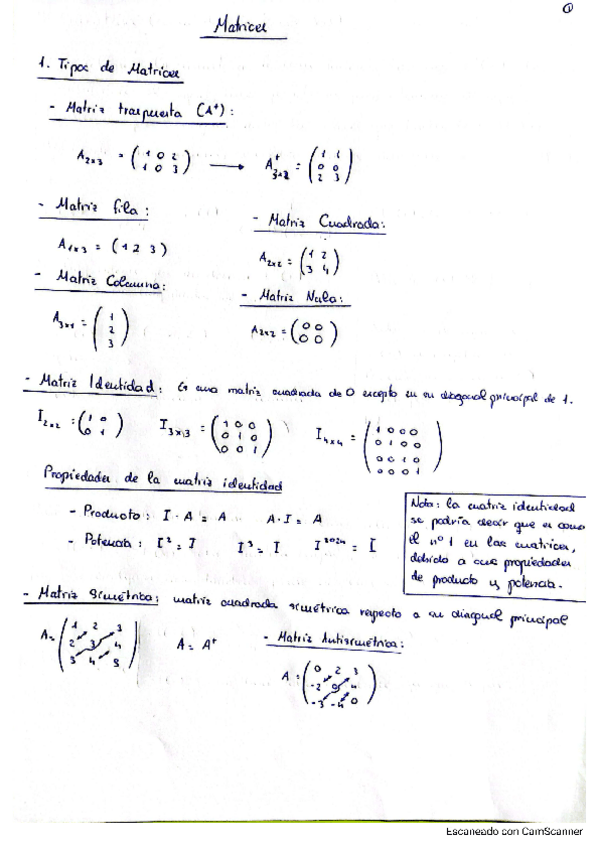 ①
Matrices
1. Tipos de Matrices
- Matriz traspuesta (A⁺):
A₂ₓ₃ = (1 0 2 / 1 0 3) → A⁺₃ₓ₂ = (1 1 / 0 0 / 2 3)
- Matriz fila:
A₁ₓ₃ = (1 2 3)
- Matriz Cuadrada:
A₂ₓ₂ = (1 2 / 3 4)
- Matriz Columna:
A₃ₓ₁ = (1 / 2 / 3)
- Matriz Nula:
A₂ₓ₂ = (0 0 / 0 0)
- Matriz Identidad: Es una matriz cuadrada de 0 excepto en su diagonal principal de 1.
I₂ₓ₂ = (1 0 / 0 1) I₃ₓ₃ = (1 0 0 / 0 1 0 / 0 0 1) I₄ₓ₄ = (1 0 0 0 / 0 1 0 0 / 0 0 1 0 / 0 0 0 1)
Propiedades de la matriz identidad
- Producto: I · A = A A · I = A
- Potencia: I² = I I³ = I I²⁰²⁴ = I
Nota: la matriz identidad
se podría decir que es como
el nº 1 en las matrices,
debido a sus propiedades
de producto y potencia.
- Matriz Simétrica: matriz cuadrada simétrica respecto a su diagonal principal
A = (1 2 3 / 2 3 4 / 3 4 5) A = A⁺
- Matriz Antisimétrica:
A = (0 2 3 / -2 0 4 / -3 -4 0)
Escaneado con CamScanner